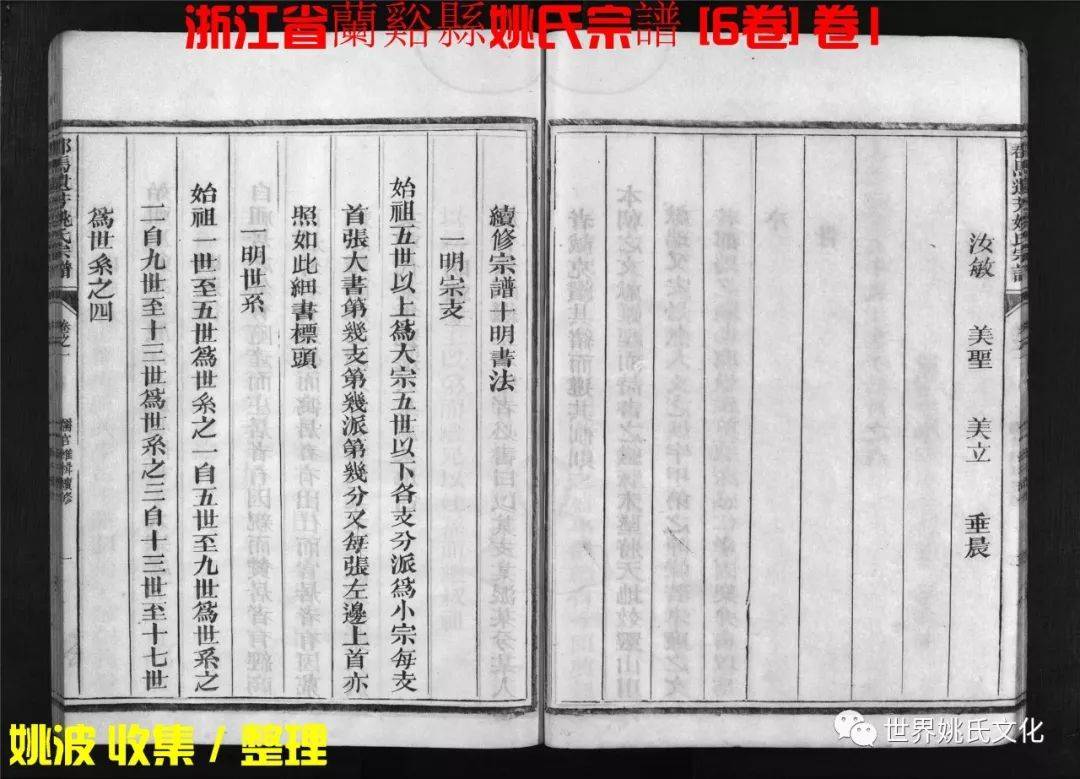 浙江省蘭谿縣姚氏宗譜 [6卷] 卷1
汝敏 美聖 美立 垂晨
續修宗譜十明書法
一明宗支
始祖五世以上爲大宗五世以下各支分派爲小宗每支
首張大書第幾支第幾派第幾分又每張左邊上首亦
照如此細書標頭
一明世系
始祖一世至五世爲世系之一自五世至九世爲世系之
二自九世至十三世爲世系之三自十三世至十七世
爲世系之四
姚氏宗譜
卷之一
續修
一
姚波 收集 / 整理
世界姚氏文化